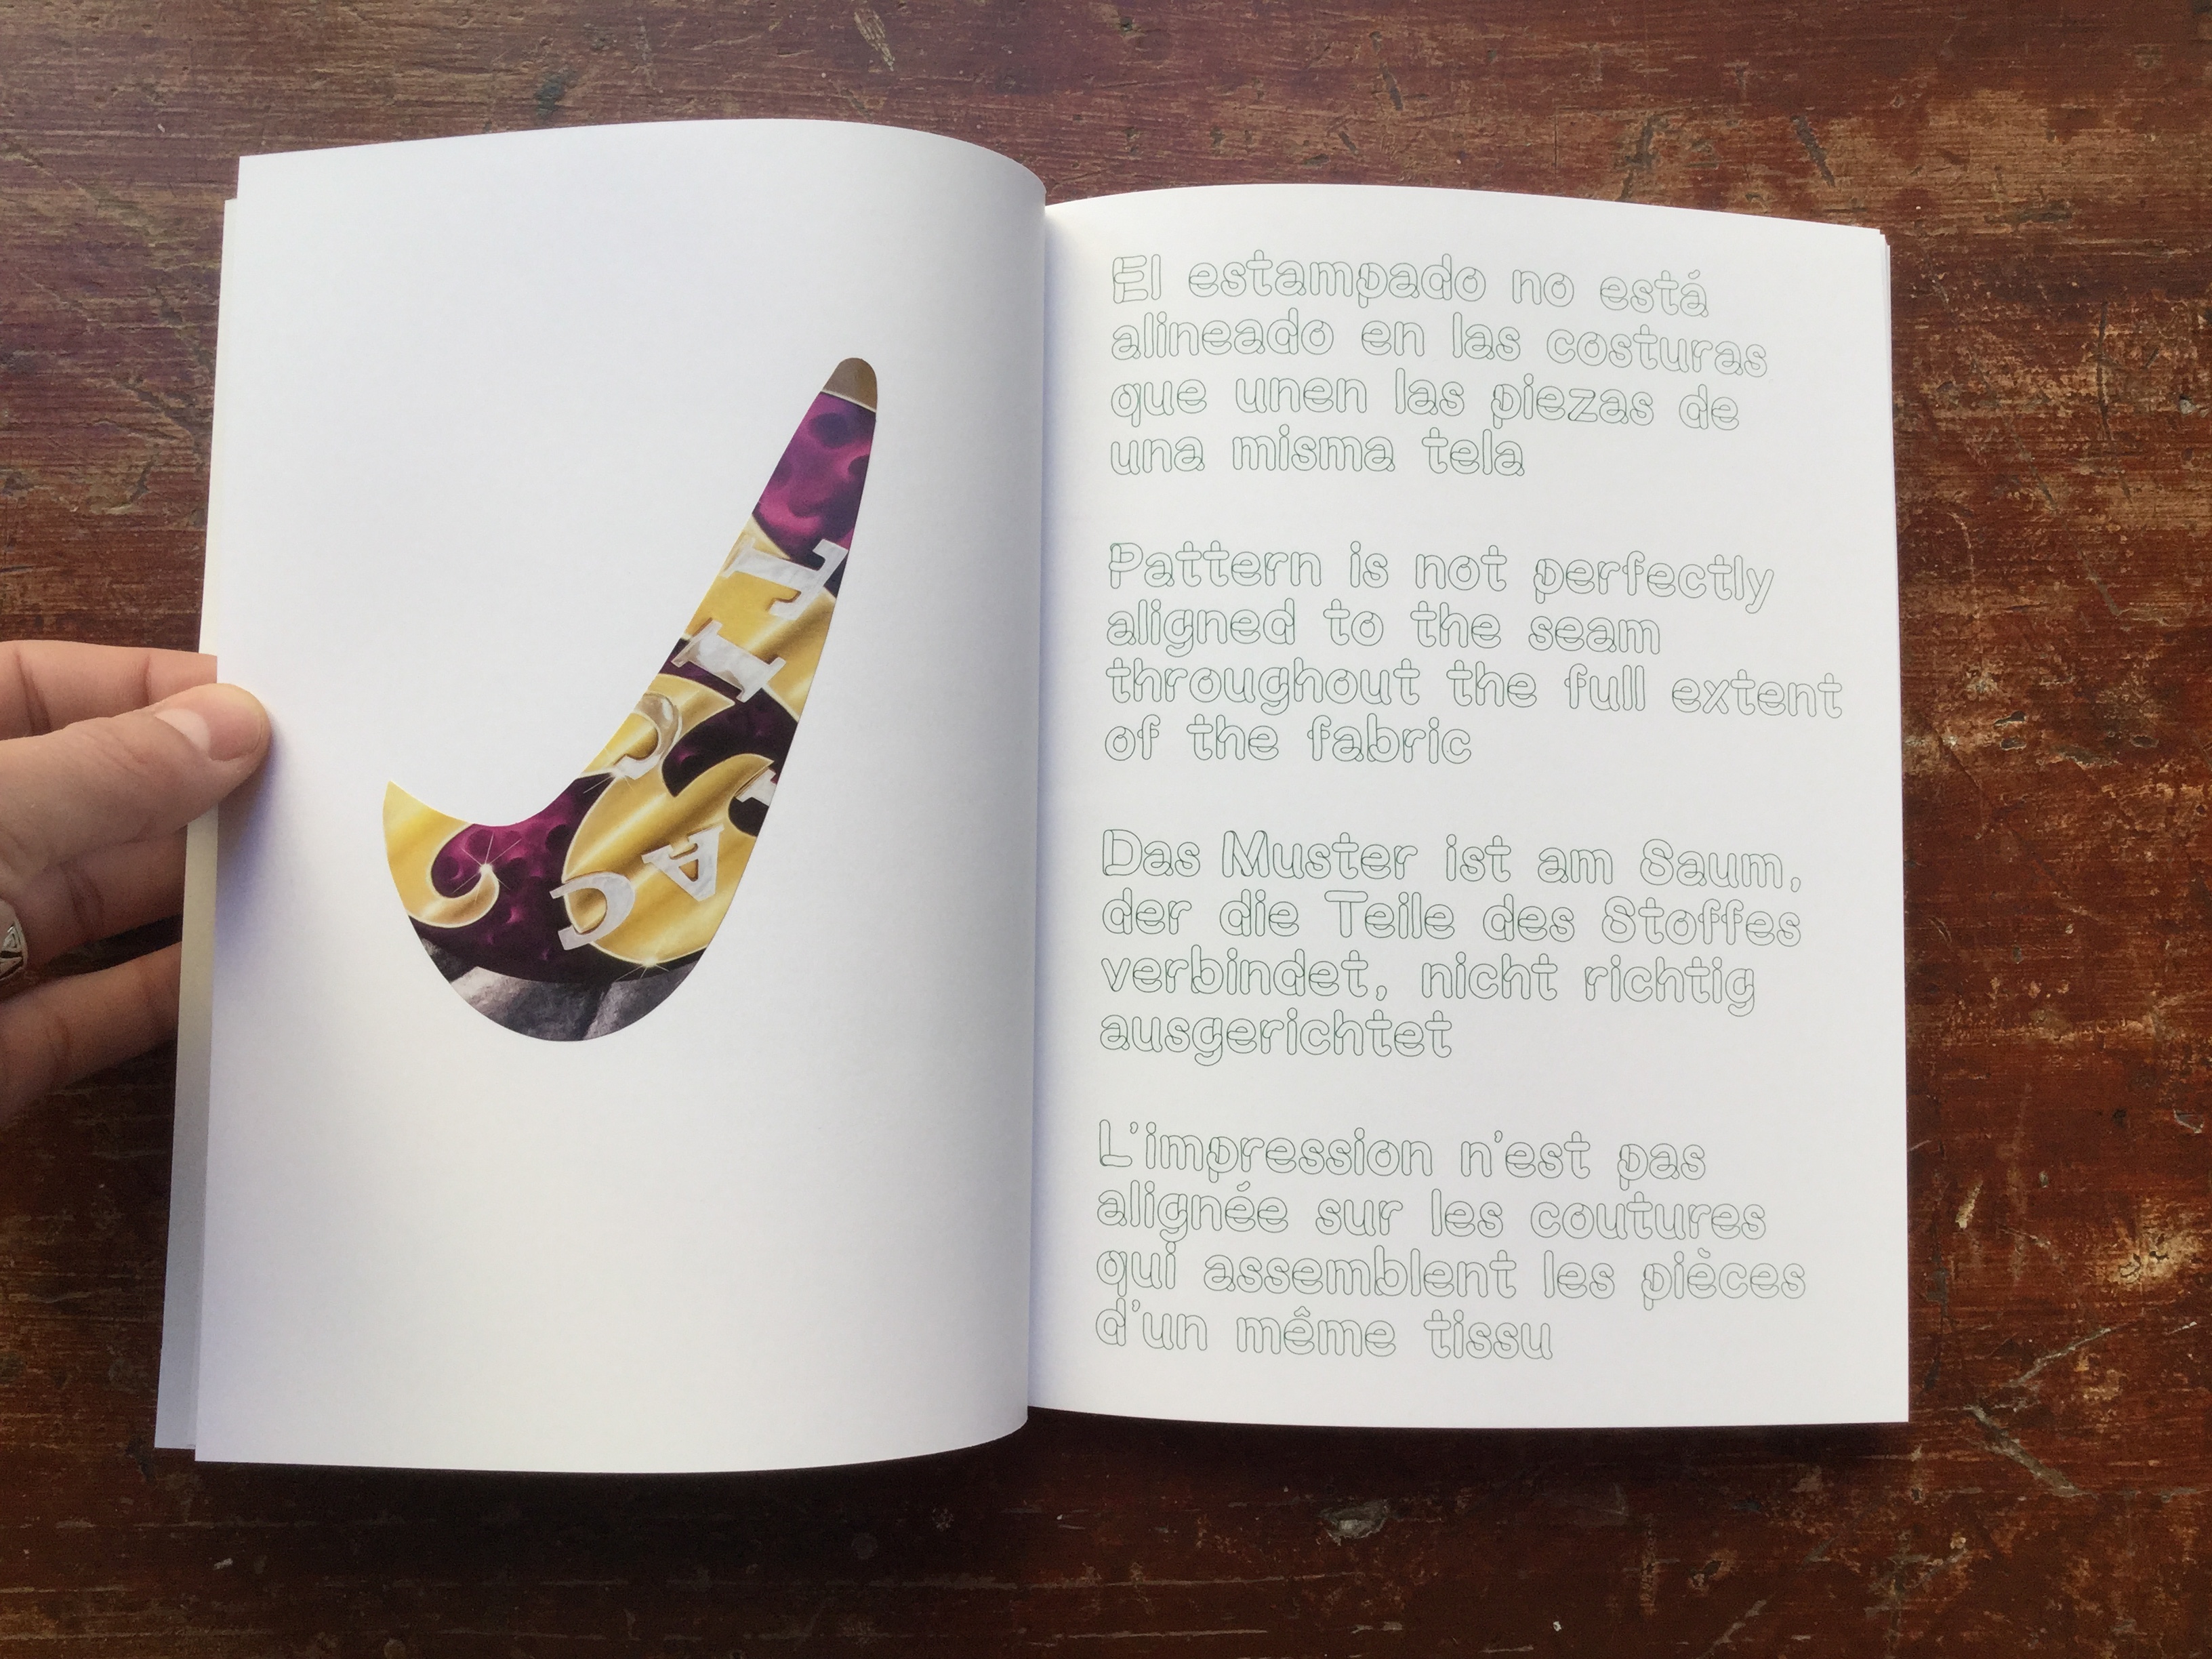 El estampado no está
alineado en las costuras
que unen las piezas de
una misma tela
Pattern is not perfectly
aligned to the seam
throughout the full extent
of the fabric
Das Muster ist am Saum,
der die Teile des Stoffes
verbindet, nicht richtig
ausgerichtet
L'impression n'est pas
alignée sur les coutures
qui assemblent les pièces
d'un même tissu